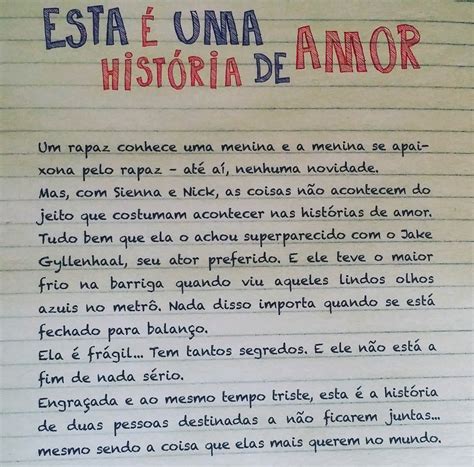 ESTA É UMA
HISTÓRIA DE AMOR
Um rapaz conhece uma menina e a menina se apai-
xona pelo rapaz – até aí, nenhuma novidade.
Mas, com Sienna e Nick, as coisas não acontecem do
jeito que costumam acontecer nas histórias de amor.
Tudo bem que ela o achou superparecido com o Jake
Gyllenhaal, seu ator preferido. E ele teve o maior
frio na barriga quando viu aqueles lindos olhos
azuis no metrô. Nada disso importa quando se está
fechado para balanço.
Ela é frágil... Tem tantos segredos. E ele não está a
fim de nada sério.
Engraçada e ao mesmo tempo triste, esta é a história
de duas pessoas destinadas a não ficarem juntas...
mesmo sendo a coisa que elas mais querem no mundo.